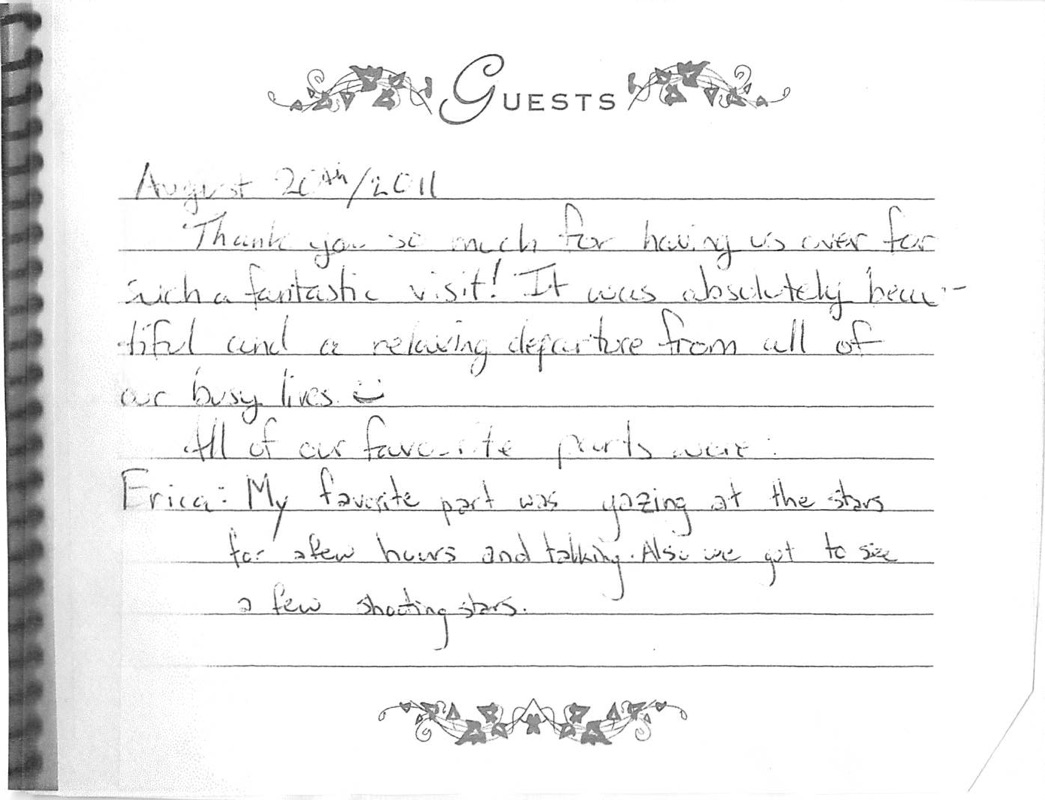 GUESTS
August 20th/2011
Thank you so much for having us over for
such a fantastic visit! It was absolutely beau-
tiful and a relaxing departure from all of
our busy lives :)
All of our favourite parts were:
Erica: My favorite part was gazing at the stars
for a few hours and talking. Also we got to see
a few shooting stars.